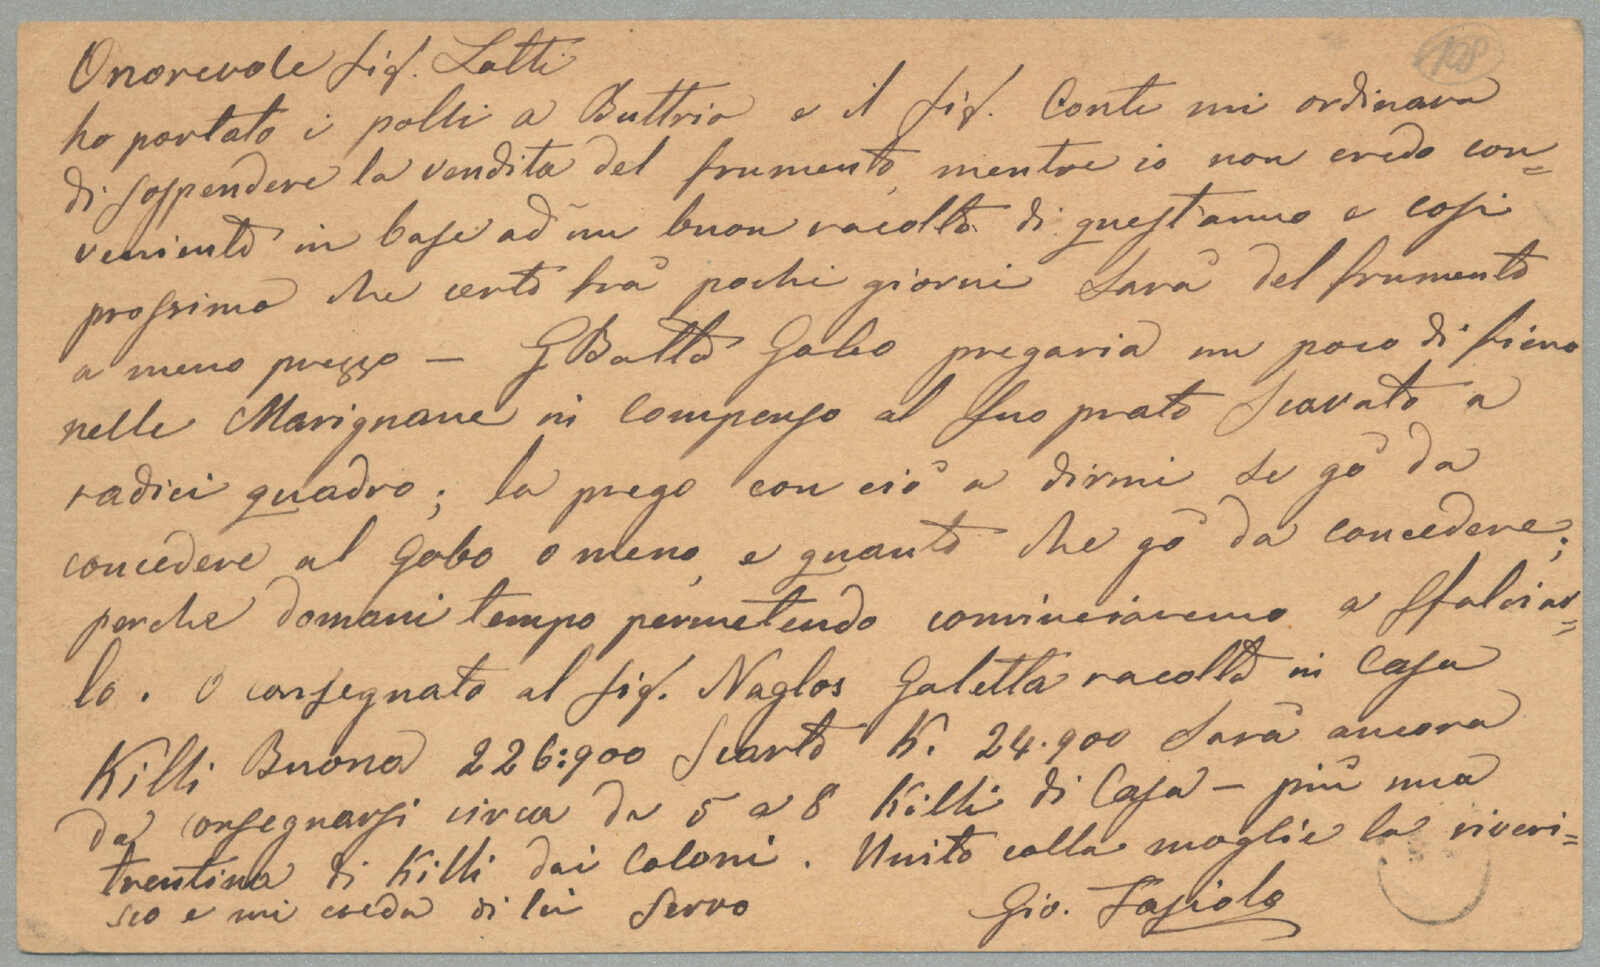 128
Onorevole Sig. Latti
ho portato i polli a Buttrio e il Sig. Conte mi ordinava
di sospendere la vendita del frumento, mentre io non credo con=
veniento in base ad un buon racolto di quest'anno e cosi
prossimo che certo frà pochi giorni Sarà del frumento
a meno prezzo — GBatta Gobo pregaria un poco di fieno
nelle Marignane in Compenso al Suo prato Scavato a
radici quadro; la prego con ciò a dirmi se gò da
concedere al Gobo o meno, e quanto che gò da concedere;
perche domani tempo permetendo cominciaremo a Sfalciar=
lo. O consegnato al Sig. Naglos Galetta racolta in Casa
Killi Buona 226:900 Scarto K. 24.900 Sarà ancora
da consegnarsi circa da 5 a 8 Killi di Casa – più una
trentina di Killi dai Coloni. Unito colla moglie la riveri=
sco e mi creda di lei Servo
Gio. Fasiolo